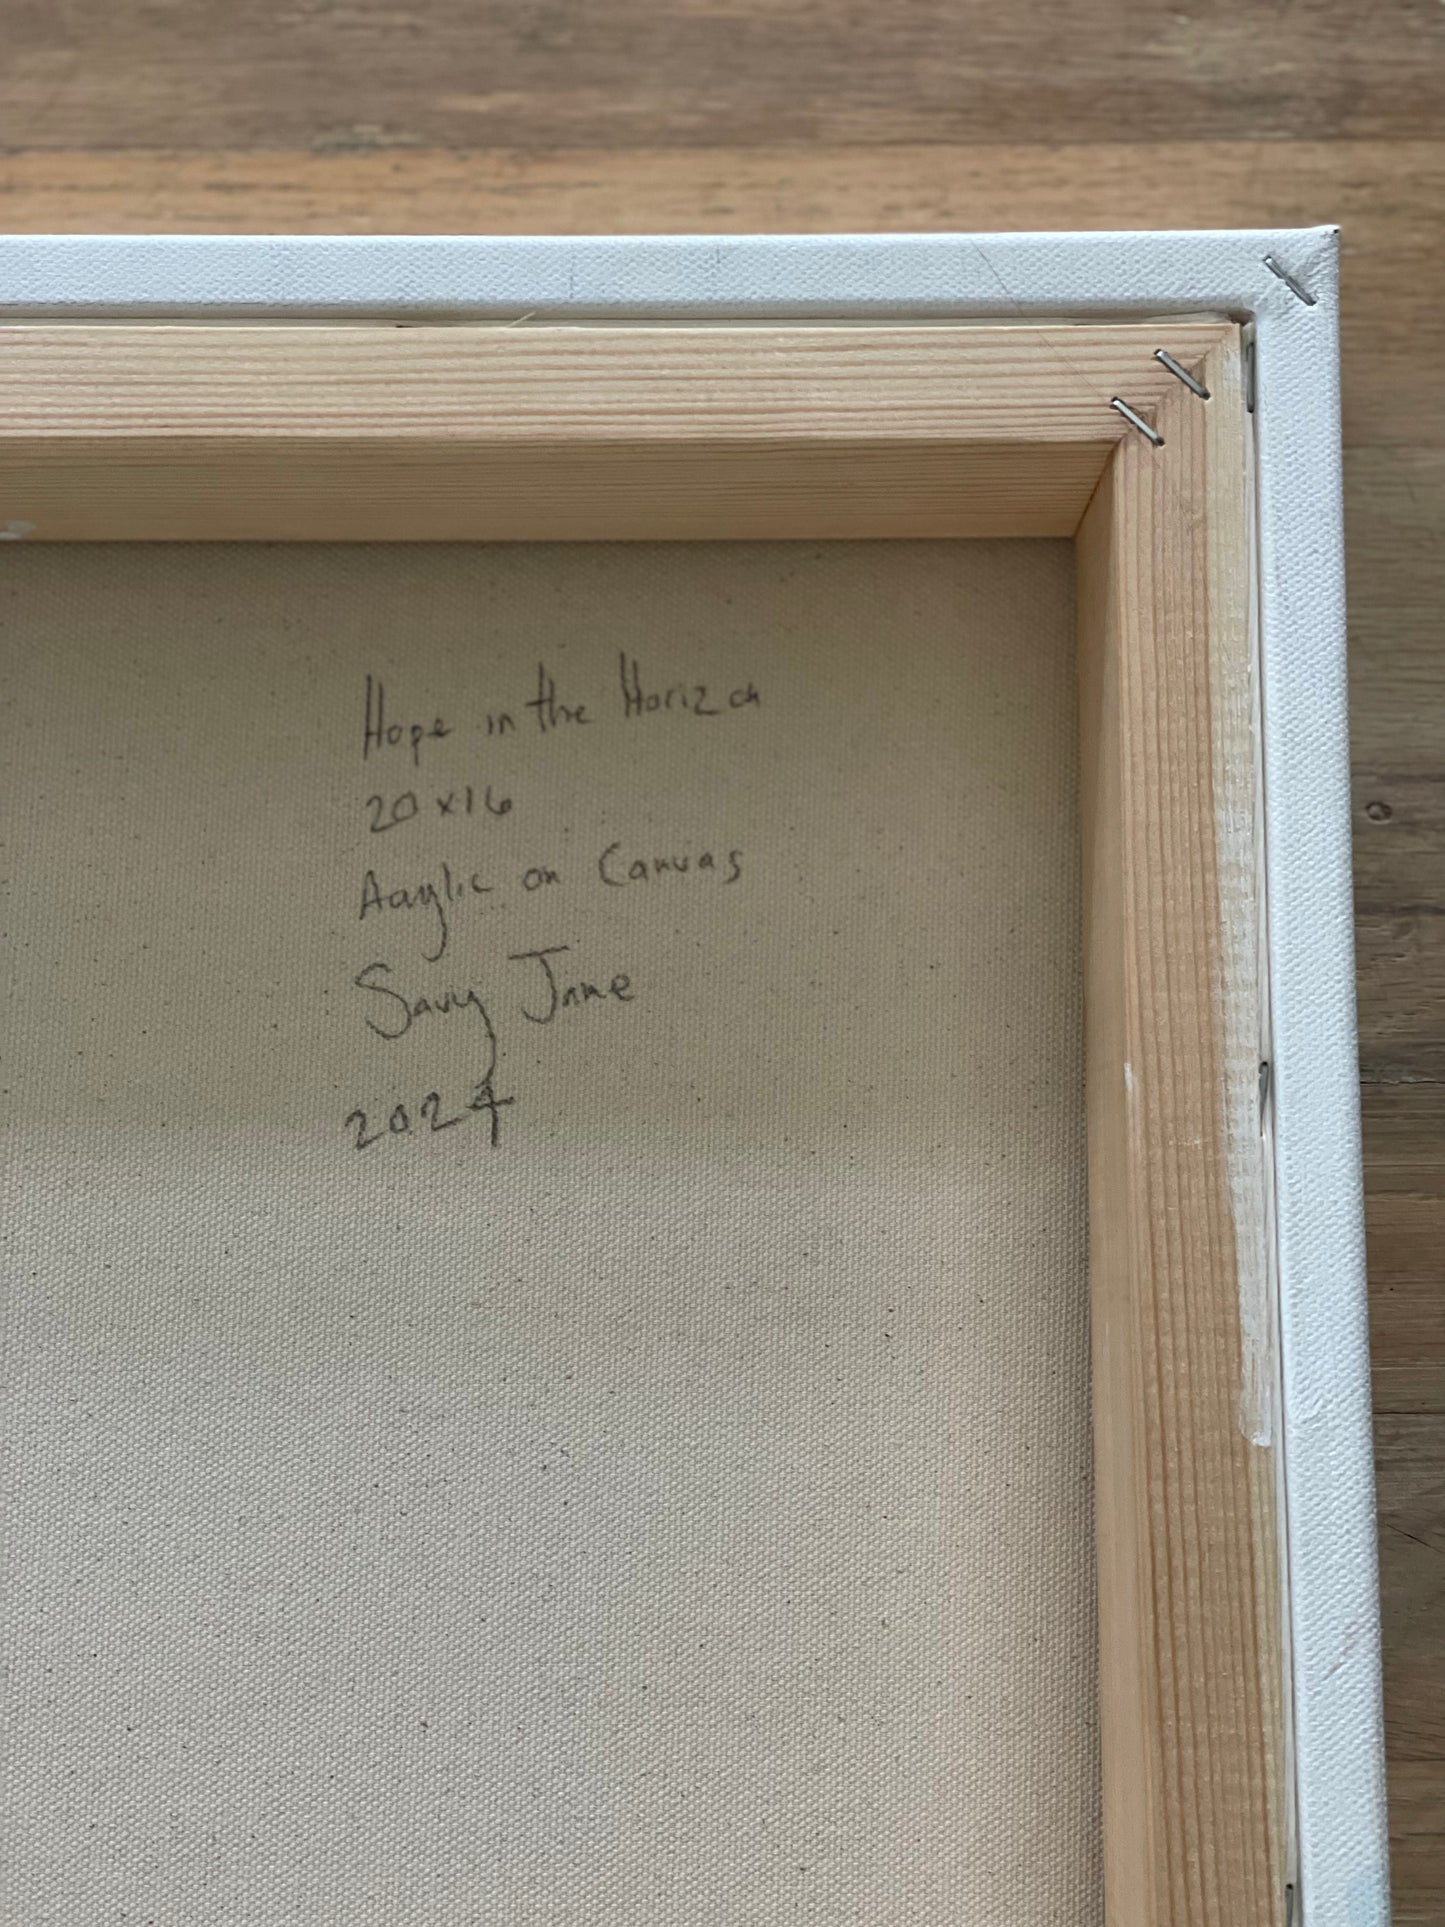 Hope in the Horizon
20x16
Acrylic on Canvas
Savy Jane
2024